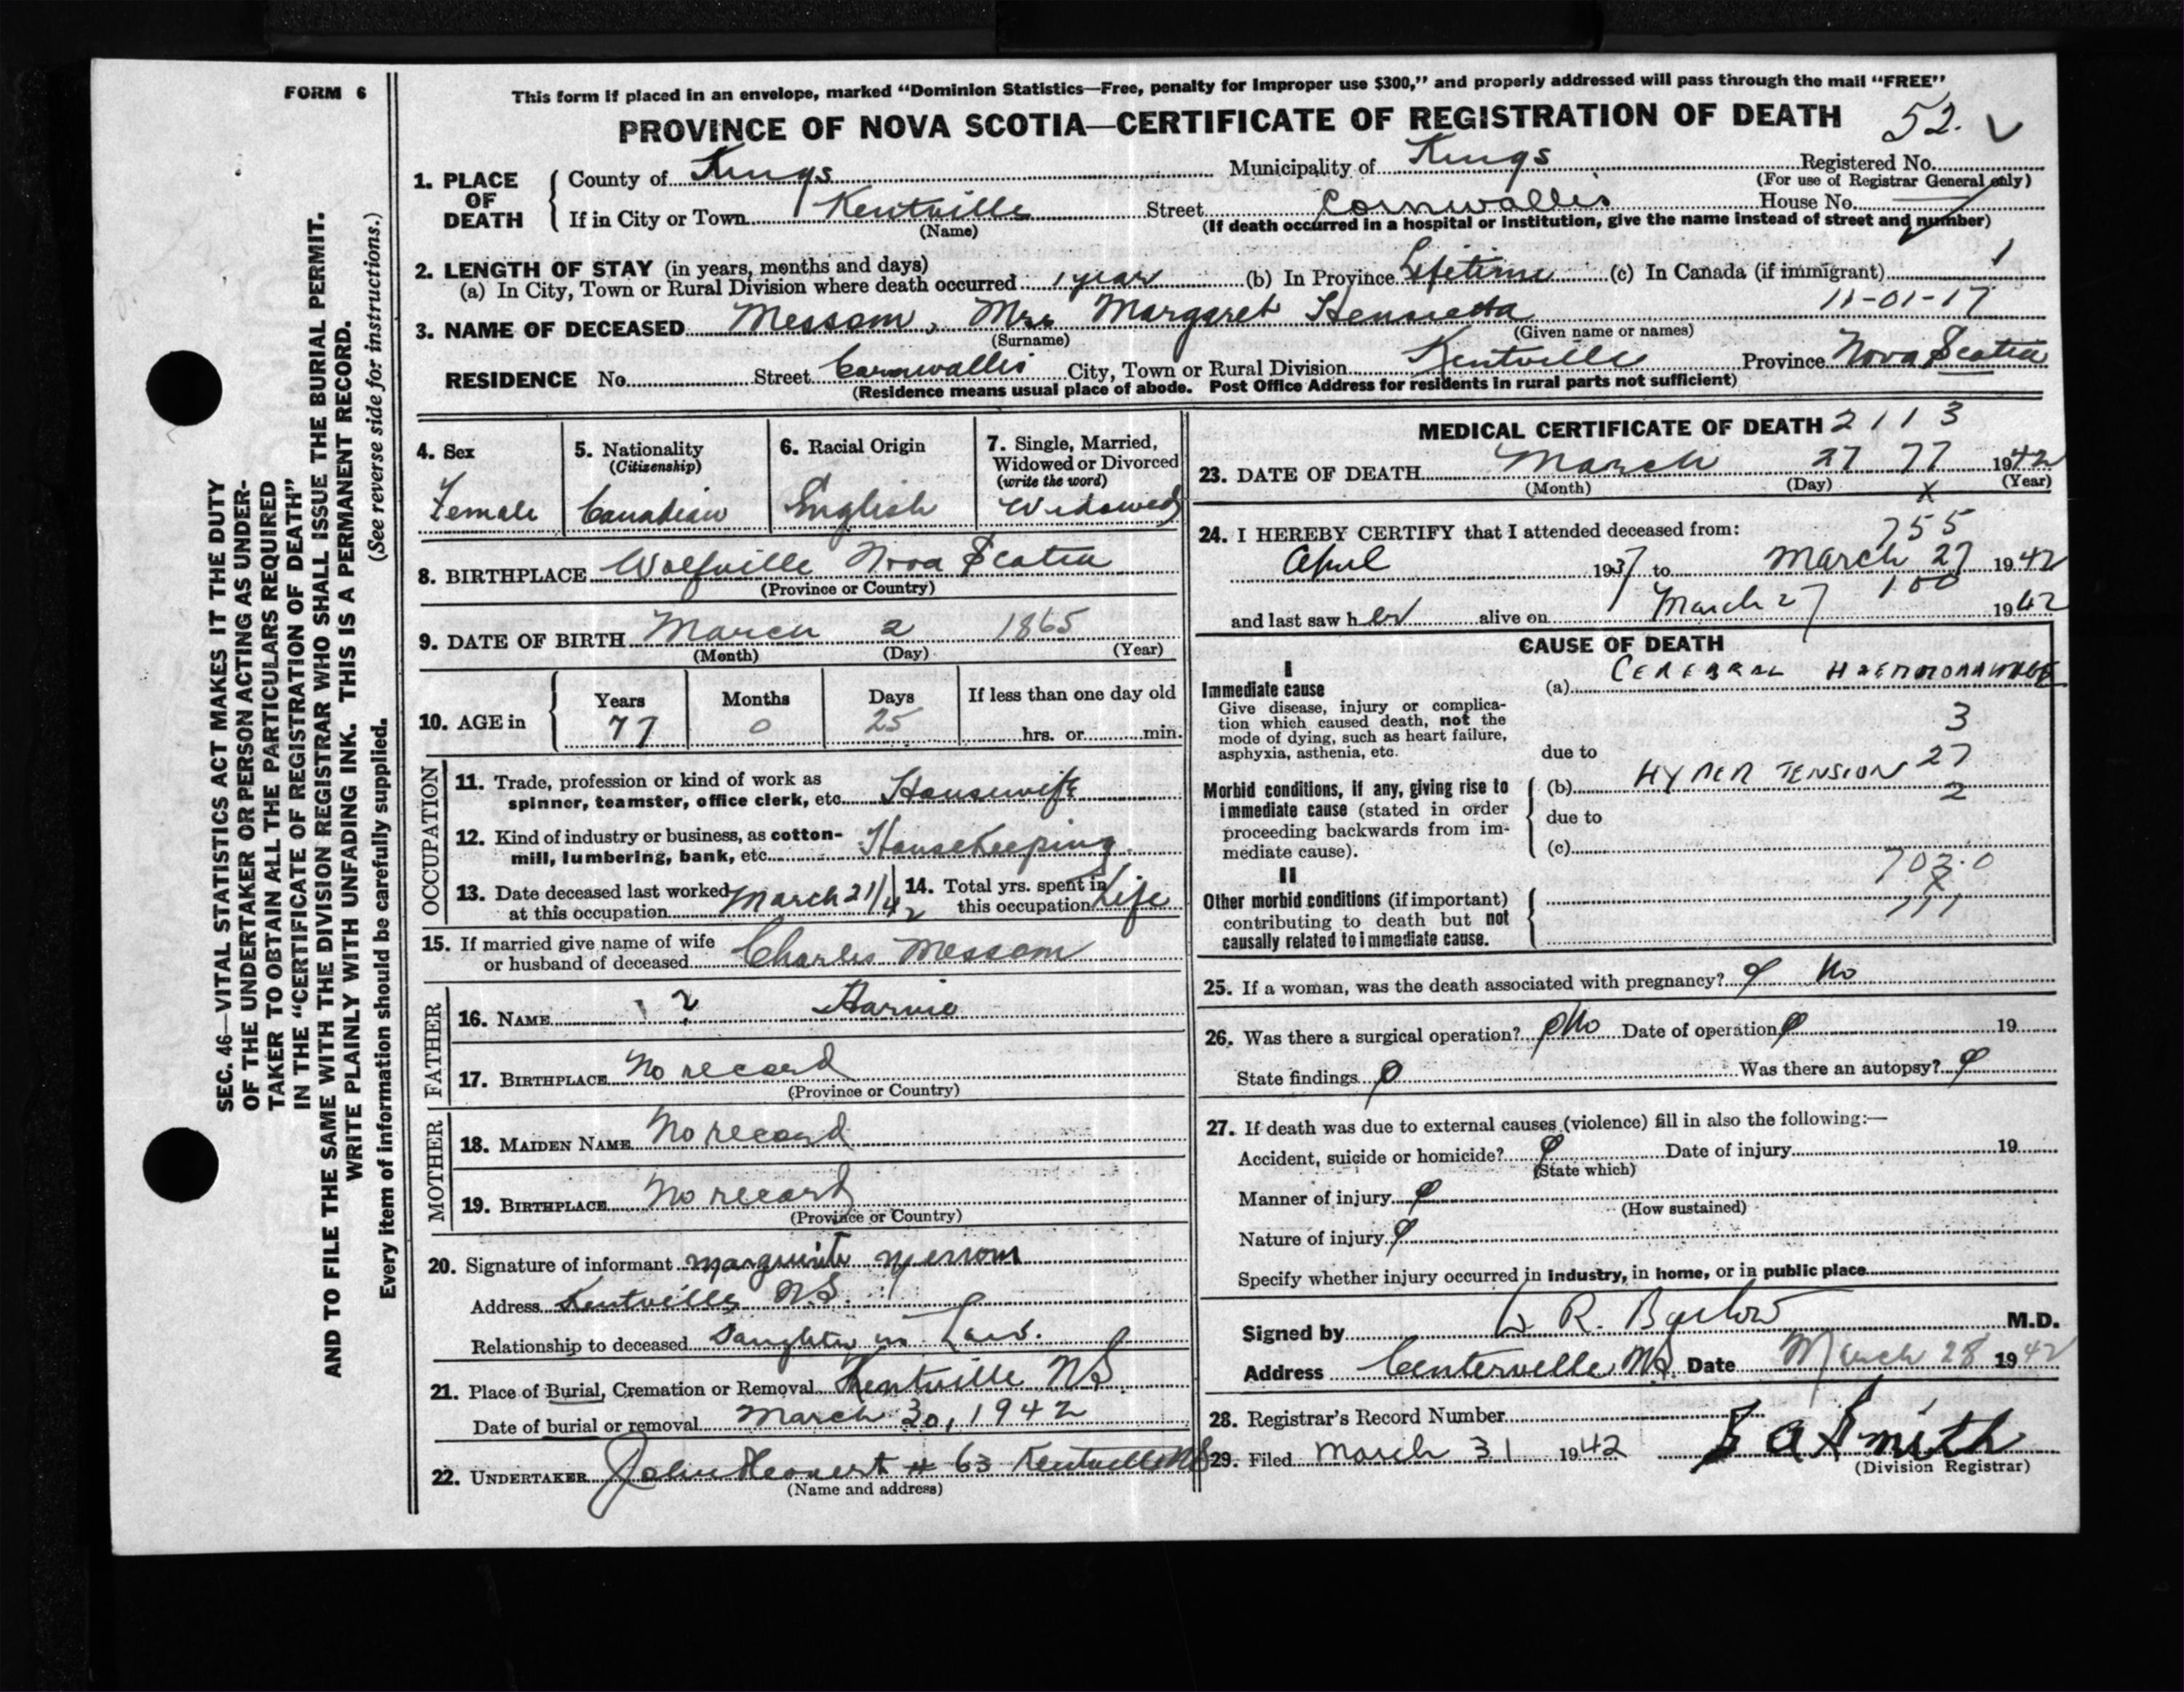 FORM 6
This form if placed in an envelope, marked “Dominion Statistics—Free, penalty for improper use $300,” and properly addressed will pass through the mail “FREE”
PROVINCE OF NOVA SCOTIA—CERTIFICATE OF REGISTRATION OF DEATH 52.
1. PLACE OF DEATH
County of Kings Municipality of Kings Registered No.
(For use of Registrar General only)
If in City or Town Kentville Street Cornwallis House No.
(Name) (If death occurred in a hospital or institution, give the name instead of street and number)
2. LENGTH OF STAY (in years, months and days)
(a) In City, Town or Rural Division where death occurred 1 year (b) In Province Lifetime (c) In Canada (if immigrant)
11-01-17
3. NAME OF DECEASED Messom, Mrs Margaret Henrietta
(Surname) (Given name or names)
RESIDENCE No. Street Cornwallis City, Town or Rural Division Kentville Province Nova Scotia
(Residence means usual place of abode. Post Office Address for residents in rural parts not sufficient)
4. Sex
Female
5. Nationality
(Citizenship)
Canadian
6. Racial Origin
English
7. Single, Married,
Widowed or Divorced
(write the word)
Widowed
8. BIRTHPLACE Wolfville Nova Scotia
(Province or Country)
9. DATE OF BIRTH March 2 1865
(Month) (Day) (Year)
10. AGE in
Years Months Days If less than one day old
77 0 25 hrs. or min.
OCCUPATION
11. Trade, profession or kind of work as
spinner, teamster, office clerk, etc. Housewife
12. Kind of industry or business, as cotton-
mill, lumbering, bank, etc. Housekeeping
13. Date deceased last worked
at this occupation March 21/42
14. Total yrs. spent in
this occupation Life
15. If married give name of wife
or husband of deceased Charles Messom
FATHER
16. NAME ? Harvie
17. BIRTHPLACE No record
(Province or Country)
MOTHER
18. MAIDEN NAME No record
19. BIRTHPLACE No record
(Province or Country)
20. Signature of informant Marguerite Messom
Address Kentville NS.
Relationship to deceased Daughter in Law.
21. Place of Burial, Cremation or Removal Kentville NS
Date of burial or removal March 30, 1942
22. UNDERTAKER John # 63 Kentville NS
(Name and address)
MEDICAL CERTIFICATE OF DEATH 2113
23. DATE OF DEATH March 27 77 1942
(Month) (Day) (Year)
x
24. I HEREBY CERTIFY that I attended deceased from:
755
April 1937 to March 27 1942
100
and last saw her alive on March 27 1942
CAUSE OF DEATH
I
Immediate cause
Give disease, injury or complica-
tion which caused death, not the
mode of dying, such as heart failure,
asphyxia, asthenia, etc.
(a) CEREBRAL HAEMORRHAGE
3
due to
27
Morbid conditions, if any, giving rise to
immediate cause (stated in order
proceeding backwards from im-
mediate cause).
(b) HYPER TENSION
2
due to
(c)
703.0
x
II
Other morbid conditions (if important)
contributing to death but not
causally related to immediate cause.
111
25. If a woman, was the death associated with pregnancy? No
26. Was there a surgical operation? No Date of operation 19
State findings Was there an autopsy?
27. If death was due to external causes (violence) fill in also the following:—
Accident, suicide or homicide? Date of injury 19
(State which)
Manner of injury
(How sustained)
Nature of injury
Specify whether injury occurred in industry, in home, or in public place
Signed by R. Barlow M.D.
Address Centerville NS. Date March 28 1942
28. Registrar's Record Number
29. Filed March 31 1942 Smith
(Division Registrar)
SEC. 46—VITAL STATISTICS ACT MAKES IT THE DUTY
OF THE UNDERTAKER OR PERSON ACTING AS UNDER-
TAKER TO OBTAIN ALL THE PARTICULARS REQUIRED
IN THE “CERTIFICATE OF REGISTRATION OF DEATH”
AND TO FILE THE SAME WITH THE DIVISION REGISTRAR WHO SHALL ISSUE THE BURIAL PERMIT.
WRITE PLAINLY WITH UNFADING INK. THIS IS A PERMANENT RECORD.
(See reverse side for instructions.)
Every item of information should be carefully supplied.